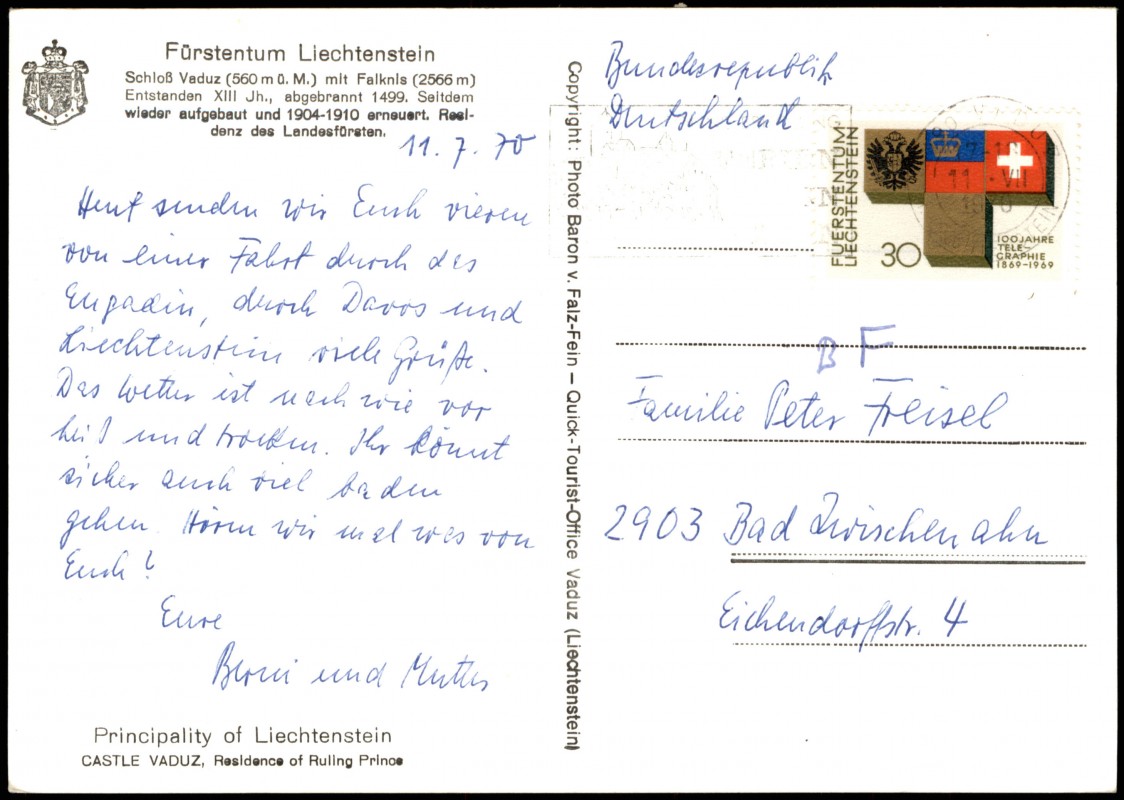 Fürstentum Liechtenstein
Schloß Vaduz (560 m ü. M.) mit Falknis (2566 m)
Entstanden XIII Jh., abgebrannt 1499. Seitdem
wieder aufgebaut und 1904-1910 erneuert. Resi-
denz des Landesfürsten.
11. 7. 70
Heut senden wir Euch vieren
von einer Fahrt durch das
Engadin, durch Davos und
Liechtenstein viele Grüße.
Das Wetter ist nach wie vor
heiß und trocken. Ihr könnt
sicher auch viel baden
gehen. Hören wir mal was von
Euch?
Eure
und Mutter
Principality of Liechtenstein
CASTLE VADUZ, Residence of Ruling Prince
Copyright: Photo Baron v. Falz-Fein – Quick-Tourist-Office Vaduz (Liechtenstein)
Bundesrepublik
Deutschland
FUERSTENTUM
LIECHTENSTEIN
30
100 JAHRE
TELE-
GRAPHIE
1869-1969
11.-VII
1970
B F
Familie Peter Freisel
2903 Bad Zwischenahn
Eichendorffstr. 4